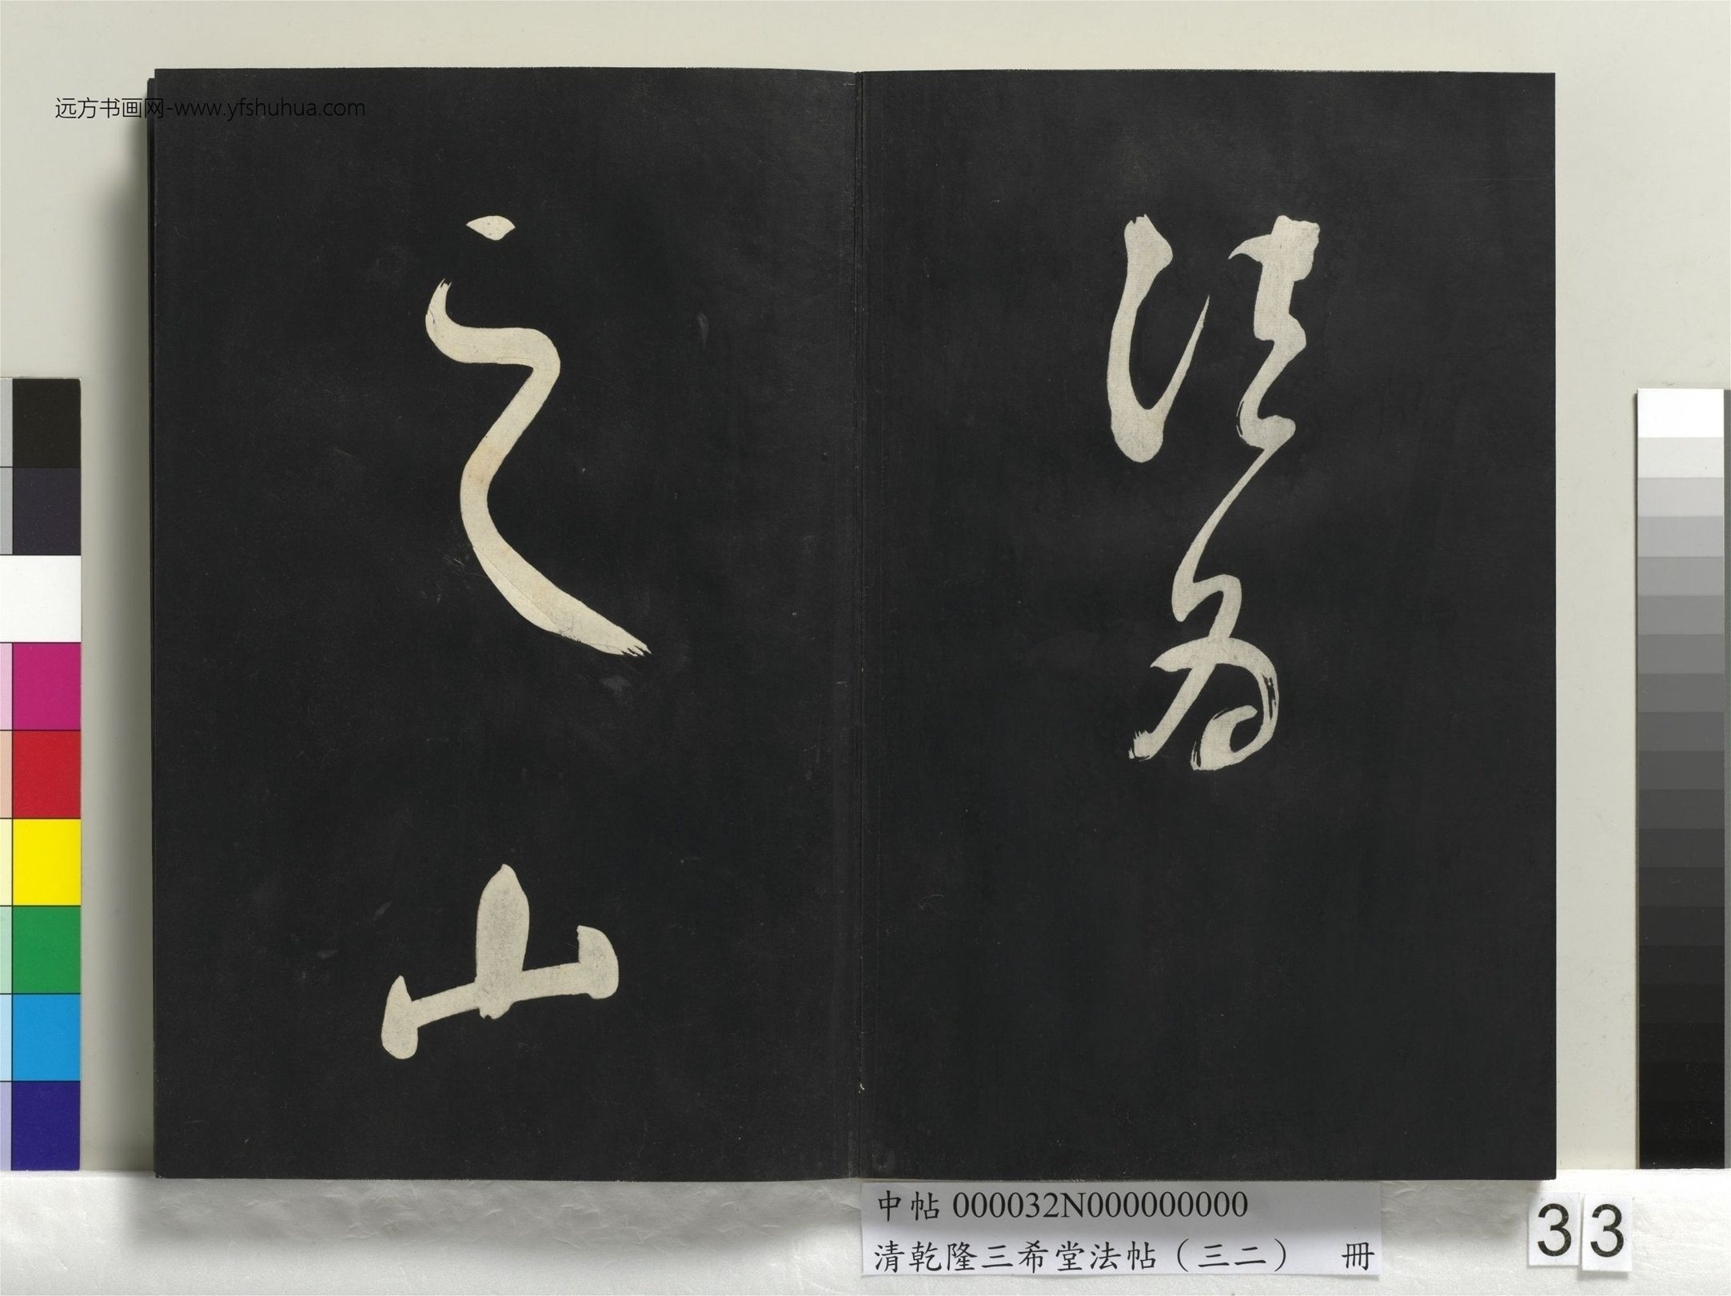 远方书画网-www.yfshuhua.com
為
之山
中帖 000032N000000000
清乾隆三希堂法帖（三二） 冊
33